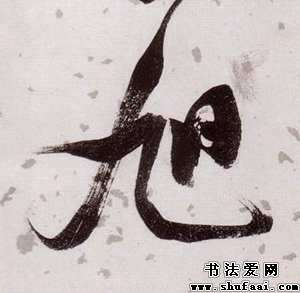 旭
书法爱网
www.shufaai.com